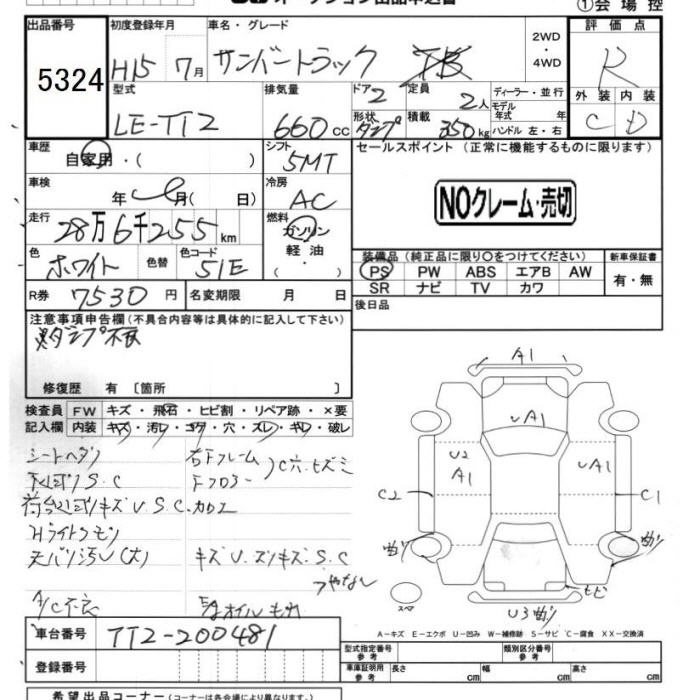 オークション出品申込書
①会場控
出品番号 初度登録年月 車名・グレード 2WD・4WD 評価点
5324 H15 7月 サンバートラック TB R
型式 排気量 ドア 定員 ディーラー・並行 外装 内装
LE-TT2 660cc 2 2人 モデル年式 年式 C D
形状 ダンプ 積載 350kg ハンドル 左・右
車歴 自家用・( ) シフト 5MT セールスポイント (正常に機能するものに限ります)
車検 年 月( 日) 冷房 AC
NOクレーム・売切
走行 28万6千255km 燃料 ガソリン 軽油 ( ・ )
色 ホワイト 色替 色コード 51E
装備品 (純正品に限り○をつけてください) 新車保証書
PS PW ABS エアB AW 有・無
SR ナビ TV カワ
R券 7530円 名変期限 月 日 後日品
注意事項申告欄 (不具合内容等は具体的に記入して下さい)
ダンプ不良
修復歴 有 〔箇所 〕
検査員 FW キズ・飛石・ヒビ割・リペア跡・×要
記入欄 内装 キズ・汚レ・コゲ・穴・スレ・キレ・破レ
シートヘタリ 右Fフレーム
下廻リS.C Fフロアー C穴.ヒズミ
キズU.S.C.カロエ
Hライトクモリ
天バリ汚レ(大) キズU.スリキズ.S.C
A/C不良 オイルモレ
A1
UA1
U2
A1
UA1
C2
C1
曲ガリ
曲ガリ
スペア
ヒビ
U3曲ガリ
A-キズ E-エクボ U-凹み W-補修跡 S-サビ C-腐食 XX-交換済
車台番号 TT2-200481
型式指定番号 参考 類別区分番号 参考
登録番号
車庫証明用 参考 長さ cm 幅 cm 高さ cm
希望出品コーナー (コーナーは各会場により異なります。)